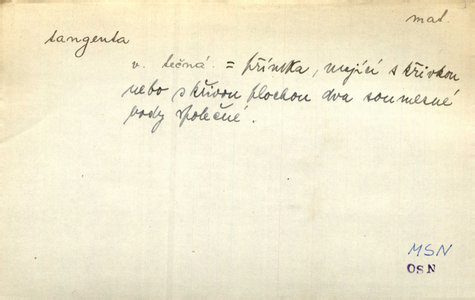 mat.
tangenta
v. tečná. = přímka, mající s křivkou
nebo s křivou plochou dva soumezné
body společné.
MSN
OSN